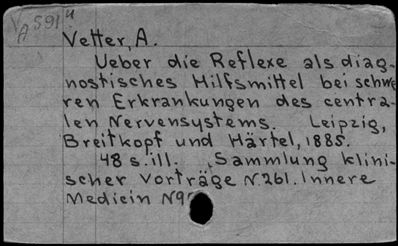 A591
Vetter, A.
Ueber die Reflexe als diag-
nostisches Hilfsmittel bei schwe
ren Erkrankungen des centra-
len Nervensystems. Leipzig,
Breitkopf und Härtel, 1885.
48 s. ill. Sammlung klini-
scher Vorträge N. 261. Innere
Medicin N9